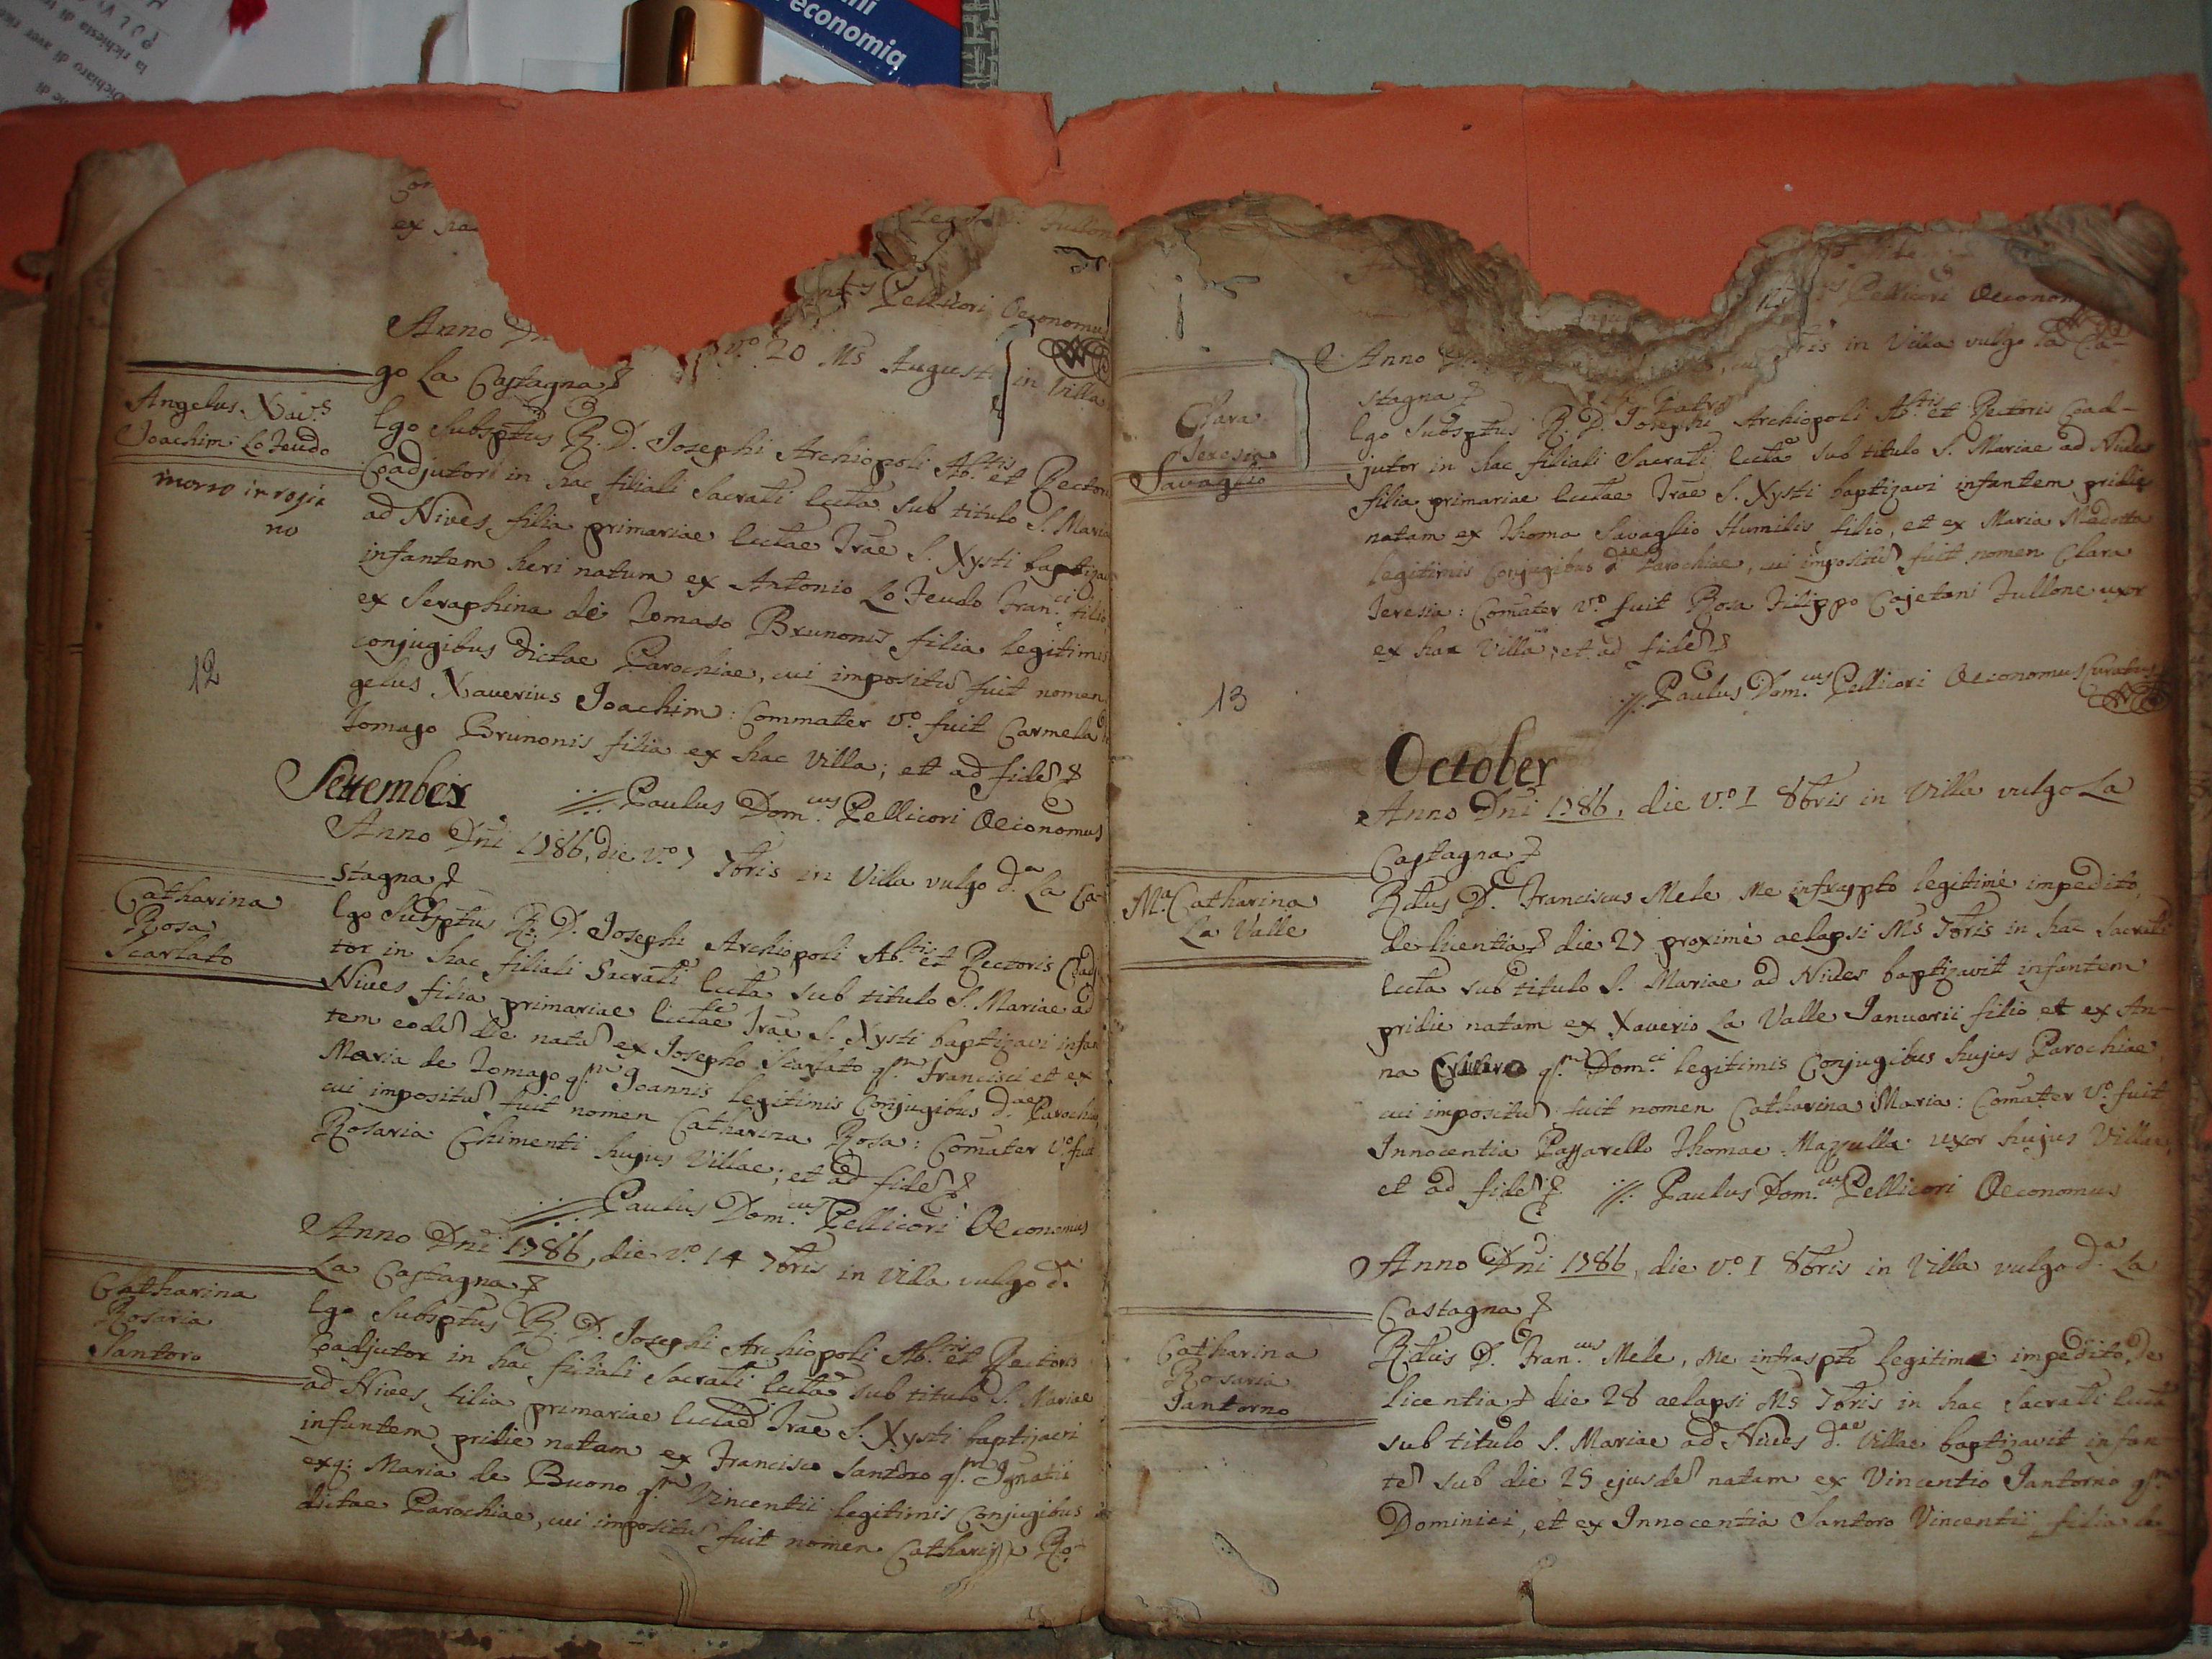 economiq
la richiesta di
Dichiaro di aver
ex ha
Pellicori Oeconomus
Anno
v.o 20 Ms Augusti in Villa
go La Castagna
Angelus Xav.s
Joachim Lo Feudo
morto in rogia
no
Ego Subsptus R. D. Josephi Archiopoli Ab.tis et Rectoris
Coadjutor in hac filiali Sacrati Eccta sub titulo S. Maria
ad Nives filia primariae Ecctae Trae S. Xysti baptizavi
infantem heri natum ex Antonio Lo Feudo Fran.ci filio
ex Seraphina de Tomaso Brunonis filia legitimis
conjugibus dictae Parochiae, cui impositu fuit nomen
gelus Xaverius Joachim: Commater v.o fuit Carmela
Tomaso Brunonis filia ex hac Villa; et ad fide
12
Settember
Paulus Dom.cus Pellicori Oeconomus
Anno Dni 1786, die v.o 7 7bris in Villa vulgo d.a La Ca-
stagna
Catharina
Rosa
Scarlato
Ego Subsptus R. D. Josephi Archiopoli Ab.tis et Rectoris Coadj
tor in hac filiali Sacrati Eccta sub titulo S. Mariae ad
Nives filia primariae Ecctae Trae S. Xysti baptizavi infan
tem eode die nata ex Josepho Scarlato q.m Francisci et ex
Maria de Tomaso q.m Joannis legitimis Conjugibus d.ae Parochiae,
cui impositu fuit nomen Catharina Rosa: Comater v.o fuit
Rosaria Chimenti hujus Villae; et ad fide
Paulus Dom.cus Pellicori Oeconomus
Anno Dni 1786, die v.o 14 7bris in Villa vulgo d.a
La Castagna
Catharina
Rosaria
Santoro
Ego Subsptus R. D. Josephi Archiopoli Ab.tis et Rectoris
Coadjutor in hac filiali Sacrati Eccta sub titulo S. Mariae
ad Nives, filia primariae Ecctae Trae S. Xysti baptizavi
infantem pridie natam ex Francisco Santoro q.m Ignatii
exq: Maria de Buono q.m Vincentii legitimis Conjugibus
dictae Parochiae, cui impositu fuit nomen Catharina Ro-
Pellicori Oeconom
Anno
in Villa vulgo La Ca-
stagna
Clara
Teresia
Savaglio
Ego Subsptus R. D. Josephi Archiopoli Ab.tis et Rectoris Coad-
jutor in hac filiali Sacrati Eccta sub titulo S. Mariae ad Nives
filia primariae Ecctae Trae S. Xysti baptizavi infantem pridie
natam ex Thoma Savaglio Humilis filio, et ex Maria Madotta
legitimis Conjugibus d.ae Parochiae, cui impositu fuit nomen Clara
Teresia: Comater v.o fuit Rosa Filippo Cajetani Fullone uxor
ex hac Villa; et ad fide
13
Paulus Dom.cus Pellicori Oeconomus Curatus
October
Anno Dni 1786, die v.o I 8bris in Villa vulgo La
Castagna
M.a Catharina
La Valle
Rdus D. Franciscus Mele Me infraspto legitimè impedito,
de licentia die 27 proximè aelapsi Ms 7bris in hac Sacrati
Eccta sub titulo S. Mariae ad Nives baptizavit infantem
pridie natam ex Xaverio La Valle Januarii filio et ex An-
na q.m Dom.ci legitimis Conjugibus hujus Parochiae
cui impositu fuit nomen Catharina Maria: Comater v.o fuit
Innocentia Passarello Thomae Mazzulla uxor hujus Villae,
et ad fide Paulus Dom.cus Pellicori Oeconomus
Anno Dni 1786, die v.o I 8bris in Villa vulgo d.a La
Castagna
Catharina
Rosaria
Iantorno
Rdus D. Fran.cus Mele, Me infraspto legitime impedito, de
licentia die 28 aelapsi Ms 7bris in hac Sacrati Eccta
sub titulo S. Mariae ad Nives d.ae Villae baptizavit infan
te sub die 25 ejusde natam ex Vincentio Iantorno q.m
Dominici, et ex Innocentia Santoro Vincentii filia le